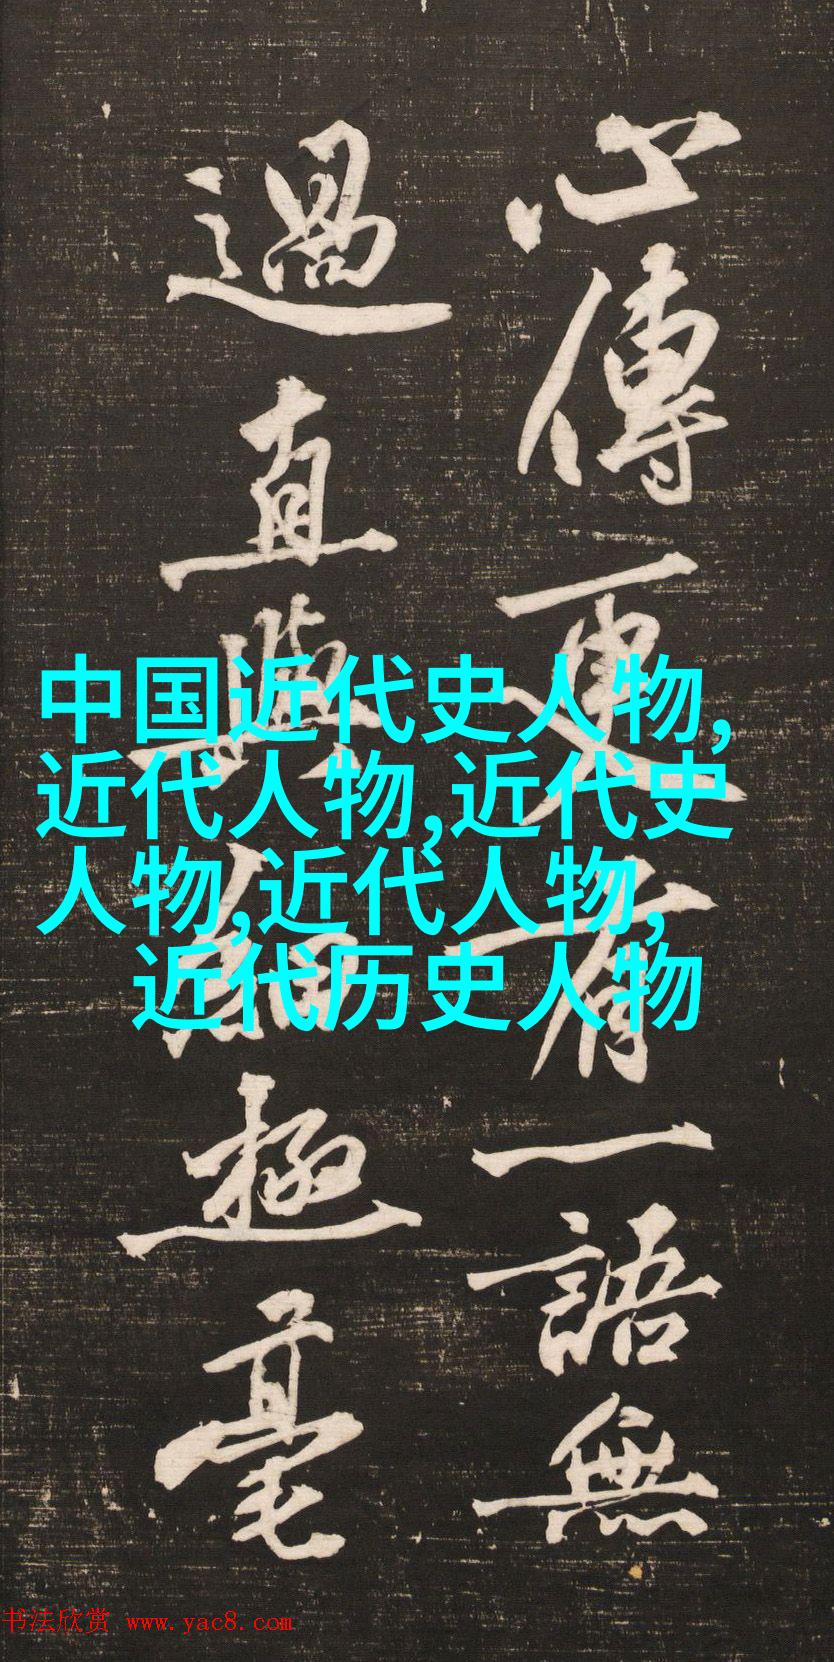 心傳更有一語無
過直與極毫
中国近代史人物,
近代人物,近代史
人物,近代人物,
近代历史人物
书法欣赏 www.yac8.com